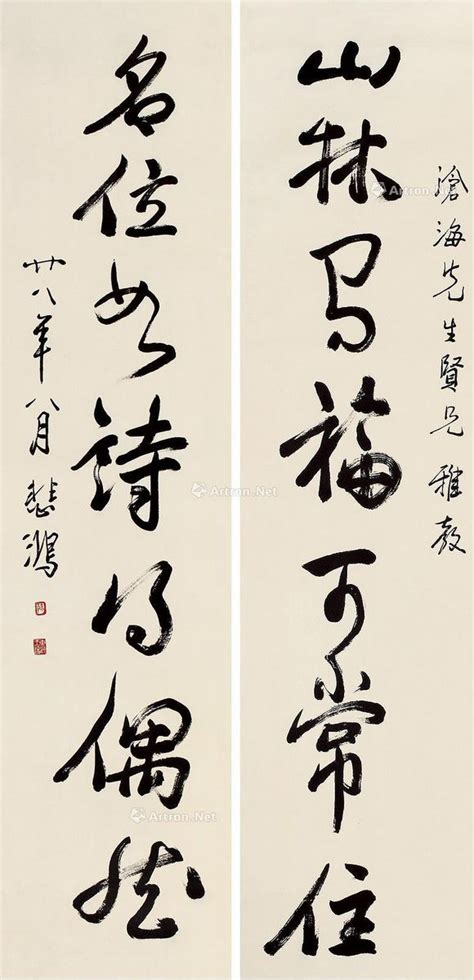 滄海先生賢兄 雅教
山林閒福可常住
名位如詩得偶然
廿八年八月 悲鴻
Artron.Net
Artron.Net
Artron.Net